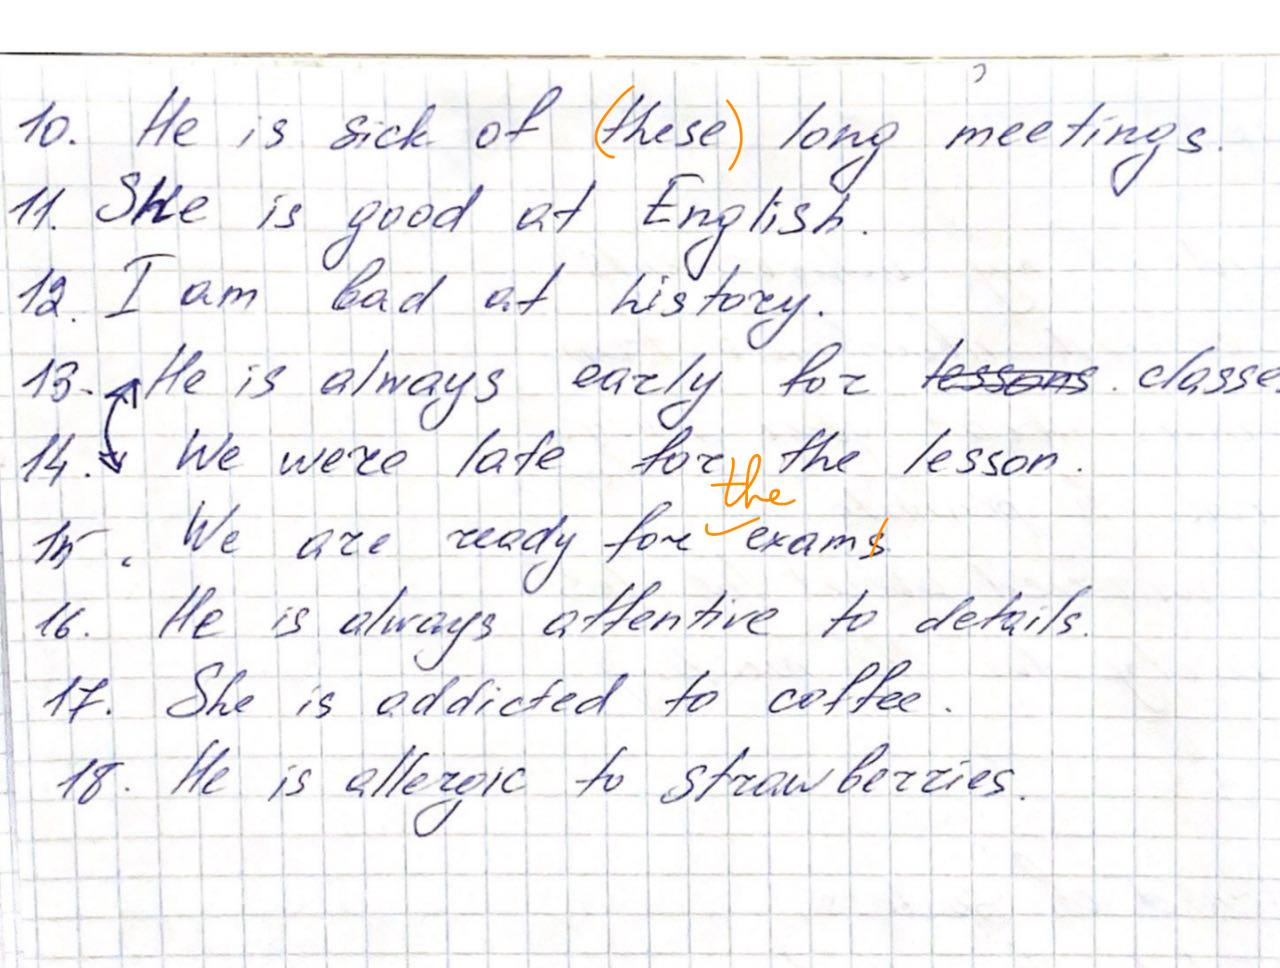 10. He is sick of (these) long meetings.
11. She is good at English.
12. I am bad at history.
13. He is always early for lessons. classe
14. We were late for the lesson.
the
15. We are ready for exams
16. He is always attentive to details.
17. She is addicted to coffee.
18. He is allergic to strawberries.